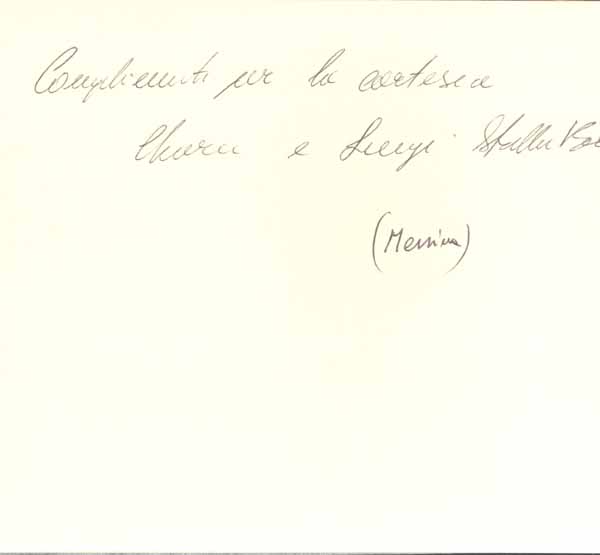 Complimenti per la cortesia
Chiara e Luigi
(Messina)